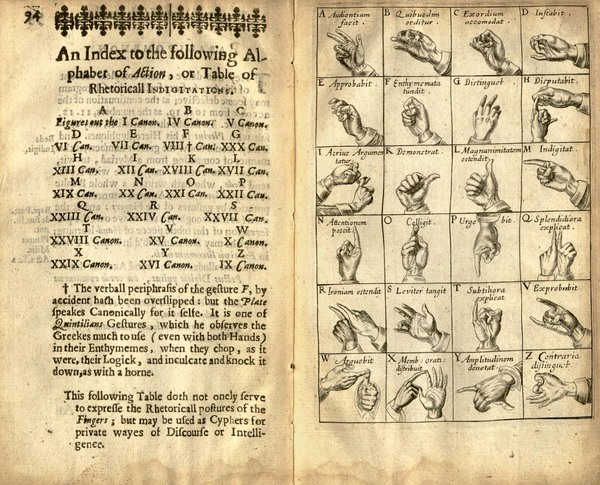 94
An Index to the following Al-
phabet of Action, or Table of
Rhetoricall INDIGITATIONS.
A B C
Figures out the I Canon. IV Canon. V Canon.
D E F G
VI Can. VII Can. VIII † Can. XXX Can.
H I K L
XIII Can. XII Can. XVIII Can. XVII Can.
M N O P
XIX Can. XX Can. XXI Can. XXII Can.
Q R S
XXIII Can. XXIV Can. XXVII Can.
T V W
XXVIII Canon. XV Canon. X Canon.
X Y Z
XXIX Canon. XVI Canon. IX Canon.
† The verball periphrasis of the gesture F, by
accident hath been overslipped: but the Plate
speakes Canonically for it selfe. It is one of
Quintilians Gestures, which he observes the
Greekes much to use (even with both Hands)
in their Enthymemes, when they chop, as it
were, their Logick, and inculcate and knock it
down, as with a horne.
This following Table doth not onely serve
to expresse the Rhetoricall postures of the
Fingers; but may be used as Cyphers for
private wayes of Discourse or Intelli-
gence.
A Audientium facit.
B Quibusdam orditur.
C Exordium accomodat.
D Instabit.
E Approbabit.
F Enthymemata tundit.
G Distinguet.
H Disputabit.
I Acrius Argumen tatur.
K Demonstrat.
L Magnanimitatem ostendit.
M Indigitat.
N Attentionem poscit.
O Colligit.
P Urge bit.
Q Splendidiora explicat.
R Ironiam ostendit
S Leviter tangit
T Subtiliora explicat
V Exprobabit
W Arguebit
X Memb: orati: distribuit.
Y Amplitudinem denotat
Z Contraria distinguet.